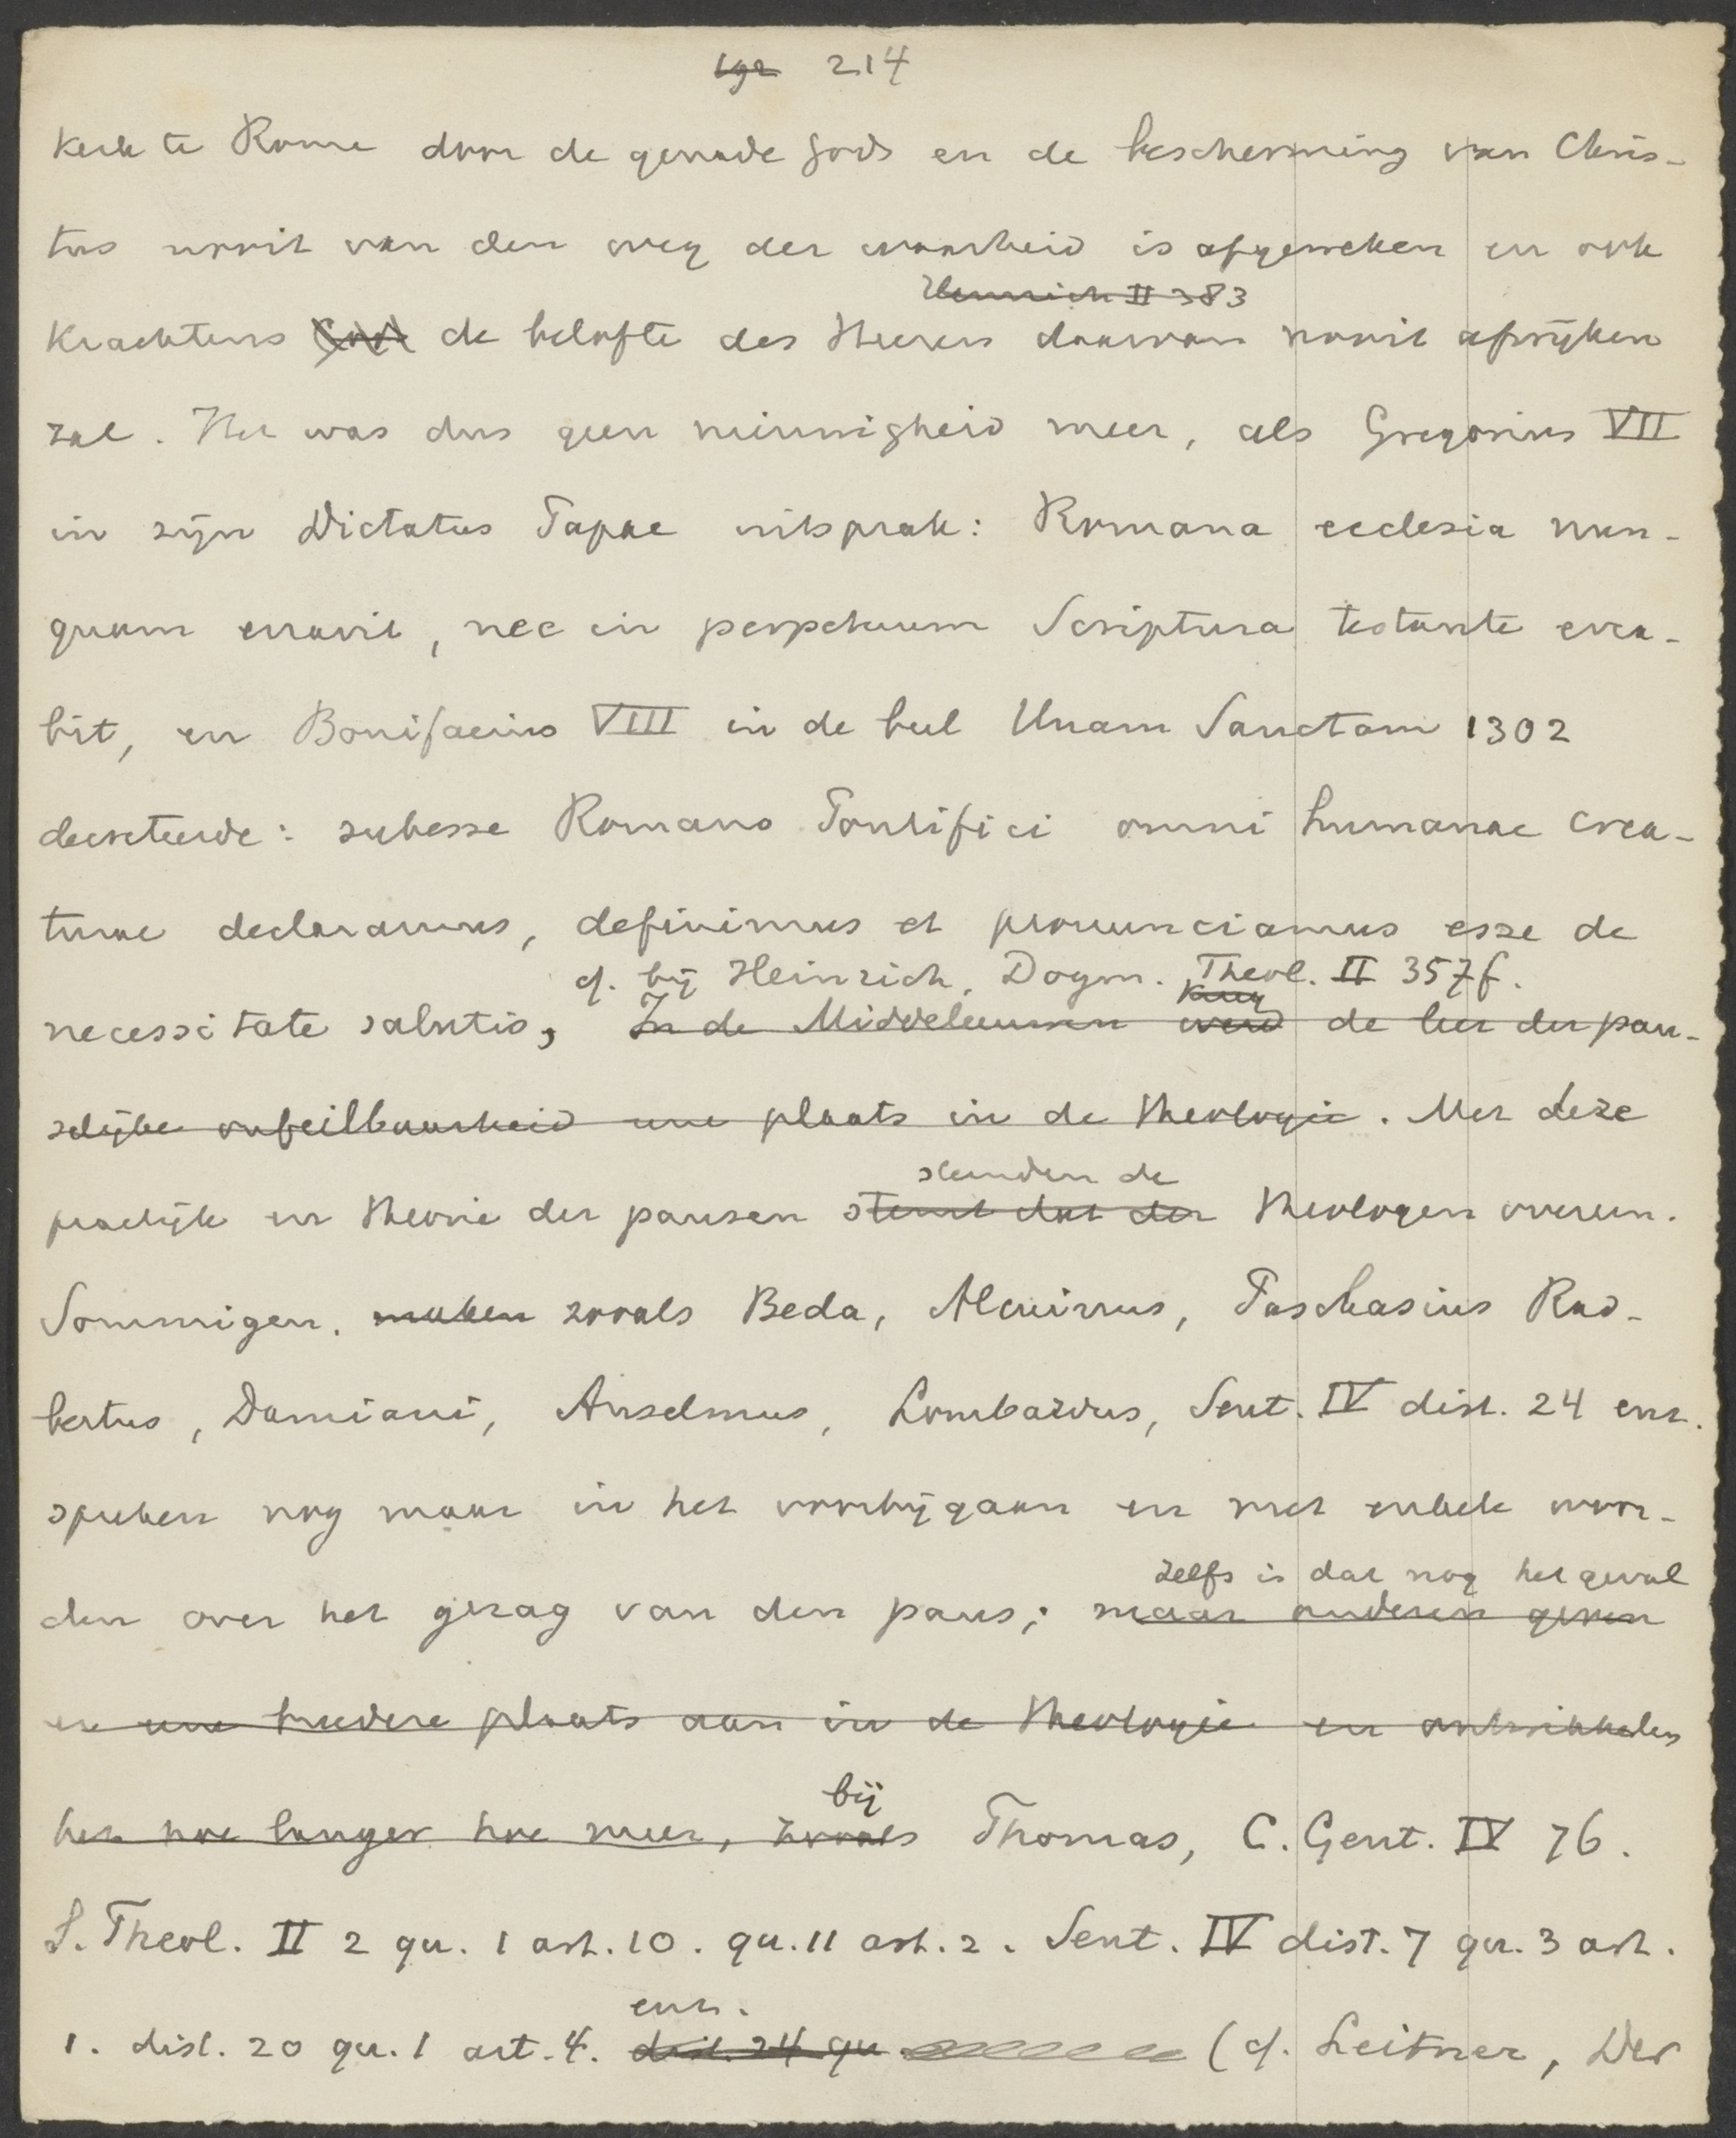 192 214
kerk te Rome door de genade Gods en de bescherming van Chris-
tus nooit van den weg der waarheid is afgeweken en ook
Heinrich II 383
krachtens de belofte des Heeren daarvan nooit afwijken
zal. Het was dus geen nieuwigheid meer, als Gregorius VII
in zijn Dictatus Papae uitsprak: Romana ecclesia nun-
quam erravit, nec in perpetuum Scriptura testante erra-
bit, en Bonifacius VIII in de bul Unam Sanctam 1302
decreteerde: subesse Romano Pontifici omni humanae crea-
turae declaramus, definimus et pronunciamus esse de
cf. bij Heinrich, Dogm. Theol. II 357 f.
kreeg
necessitate salutis, In de Middeleeuwen werd de leer der pau-
selijke onfeilbaarheid eene plaats in de theologie. Met deze
stemden de
practijk en theorie der pausen stemt dat der theologen overeen.
Sommigen, maken zooals Beda, Alcuinus, Paschasius Rad-
bertus, Damiani, Anselmus, Lombardus, Sent. IV dist. 24 enz.
spreken nog maar in het voorbijgaan en met enkele woor-
zelfs is dat nog het geval
den over het gezag van den paus; maar anderen geven
er eene breedere plaats aan in de theologie en ontwikkelen
bij
het hoe langer hoe meer, zooals Thomas, C. Gent. IV 76.
S. Theol. II 2 qu. 1 art. 10. qu. 11 art. 2. Sent. IV dist. 7 qu. 3 art.
enz.
1. dist. 20 qu. 1 art. 4. dist. 24 qu (cf. Leitner, Der